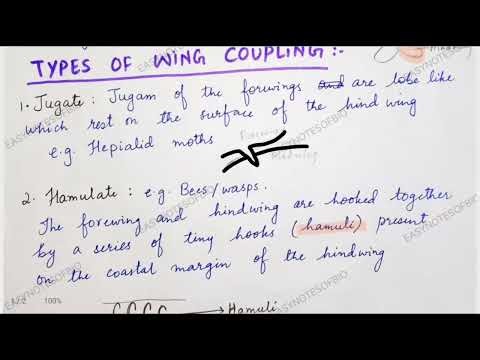 TYPES OF WING COUPLING :-
1. Jugate : Jugam of the forwings and are lobe like
which rest on the surface of the hind wing
e.g. Hepialid moths
2. Hamulate : e.g. Bees/wasps.
The forewing and hindwing are hooked together
by a series of tiny hooks (hamuli) present
on the coastal margin of the hindwing
Hamuli
100%
EASYNOTESOFBIO
EASYNOTESOFBIO
EASYNOTESOFBIO
EASYNOTESOFBIO
EASYNOTESOFBIO
EASYNOTESOFBIO